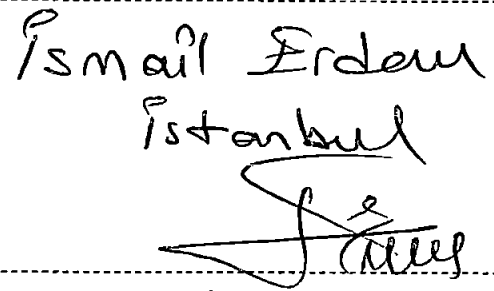 İsmail Erdem
İstanbul